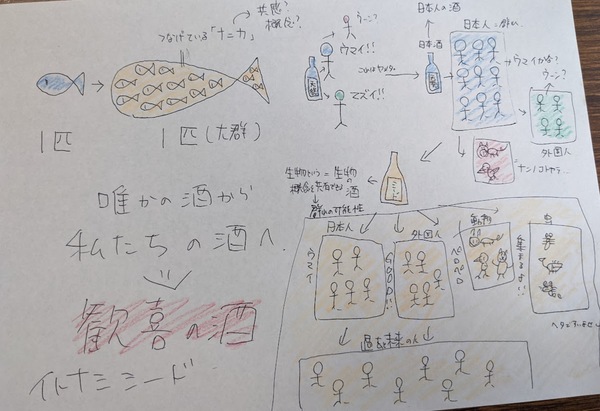 共感?
概念?
つなげている「ナニカ」
1匹
1匹(大群)
唯かの酒から
私たちの酒へ
歓喜の酒
イトナミシード
ウーン?
ウマイ!!
マズイ!!
日本人の酒
日本酒
日本人
ウマイかな?
ウーン?
外国人
生物という
概念を共有できる
=生物の酒
群れの可能性
ミード
日本人
ウマイ
外国人
GOOD!!
動物
ペロペロ
虫
集まるよ!!
ヘタですいません
過去未来の人